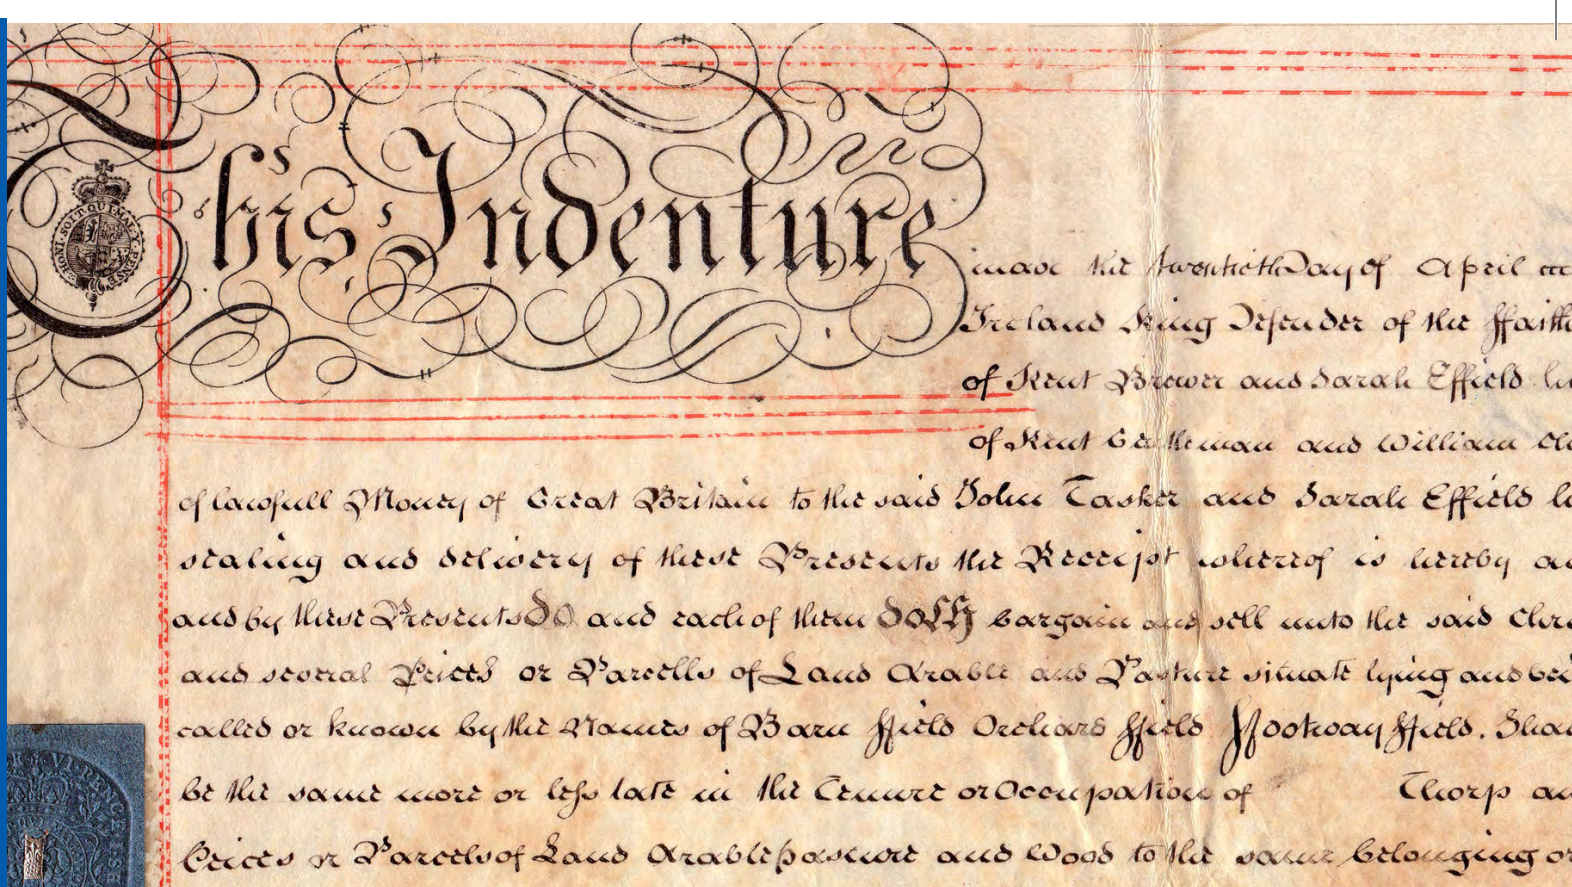 This Indenture
HONI·SOIT·QUI·MAL·Y·PENSE
made the twentieth Day of April
Ireland King Defender of the ffaith
of Kent Brewer and Sarah Effield
of Kent Gentleman and William
of lawfull Money of Great Britain to the said John Tasker and Sarah Effield
sealing and delivery of these Presents the Receipt whereof is hereby
and by these Presents Do and each of them Doth bargain and sell unto the said
and several Peices or Parcells of Land Arable and Pasture situate lying and
called or known by the Names of Barn ffield Orchard ffield ffootway ffield.
be the same more or less late in the Tenure or Occupation of Thorp
Peices or Parcels of Land Arable pasture and Wood to the same belonging or